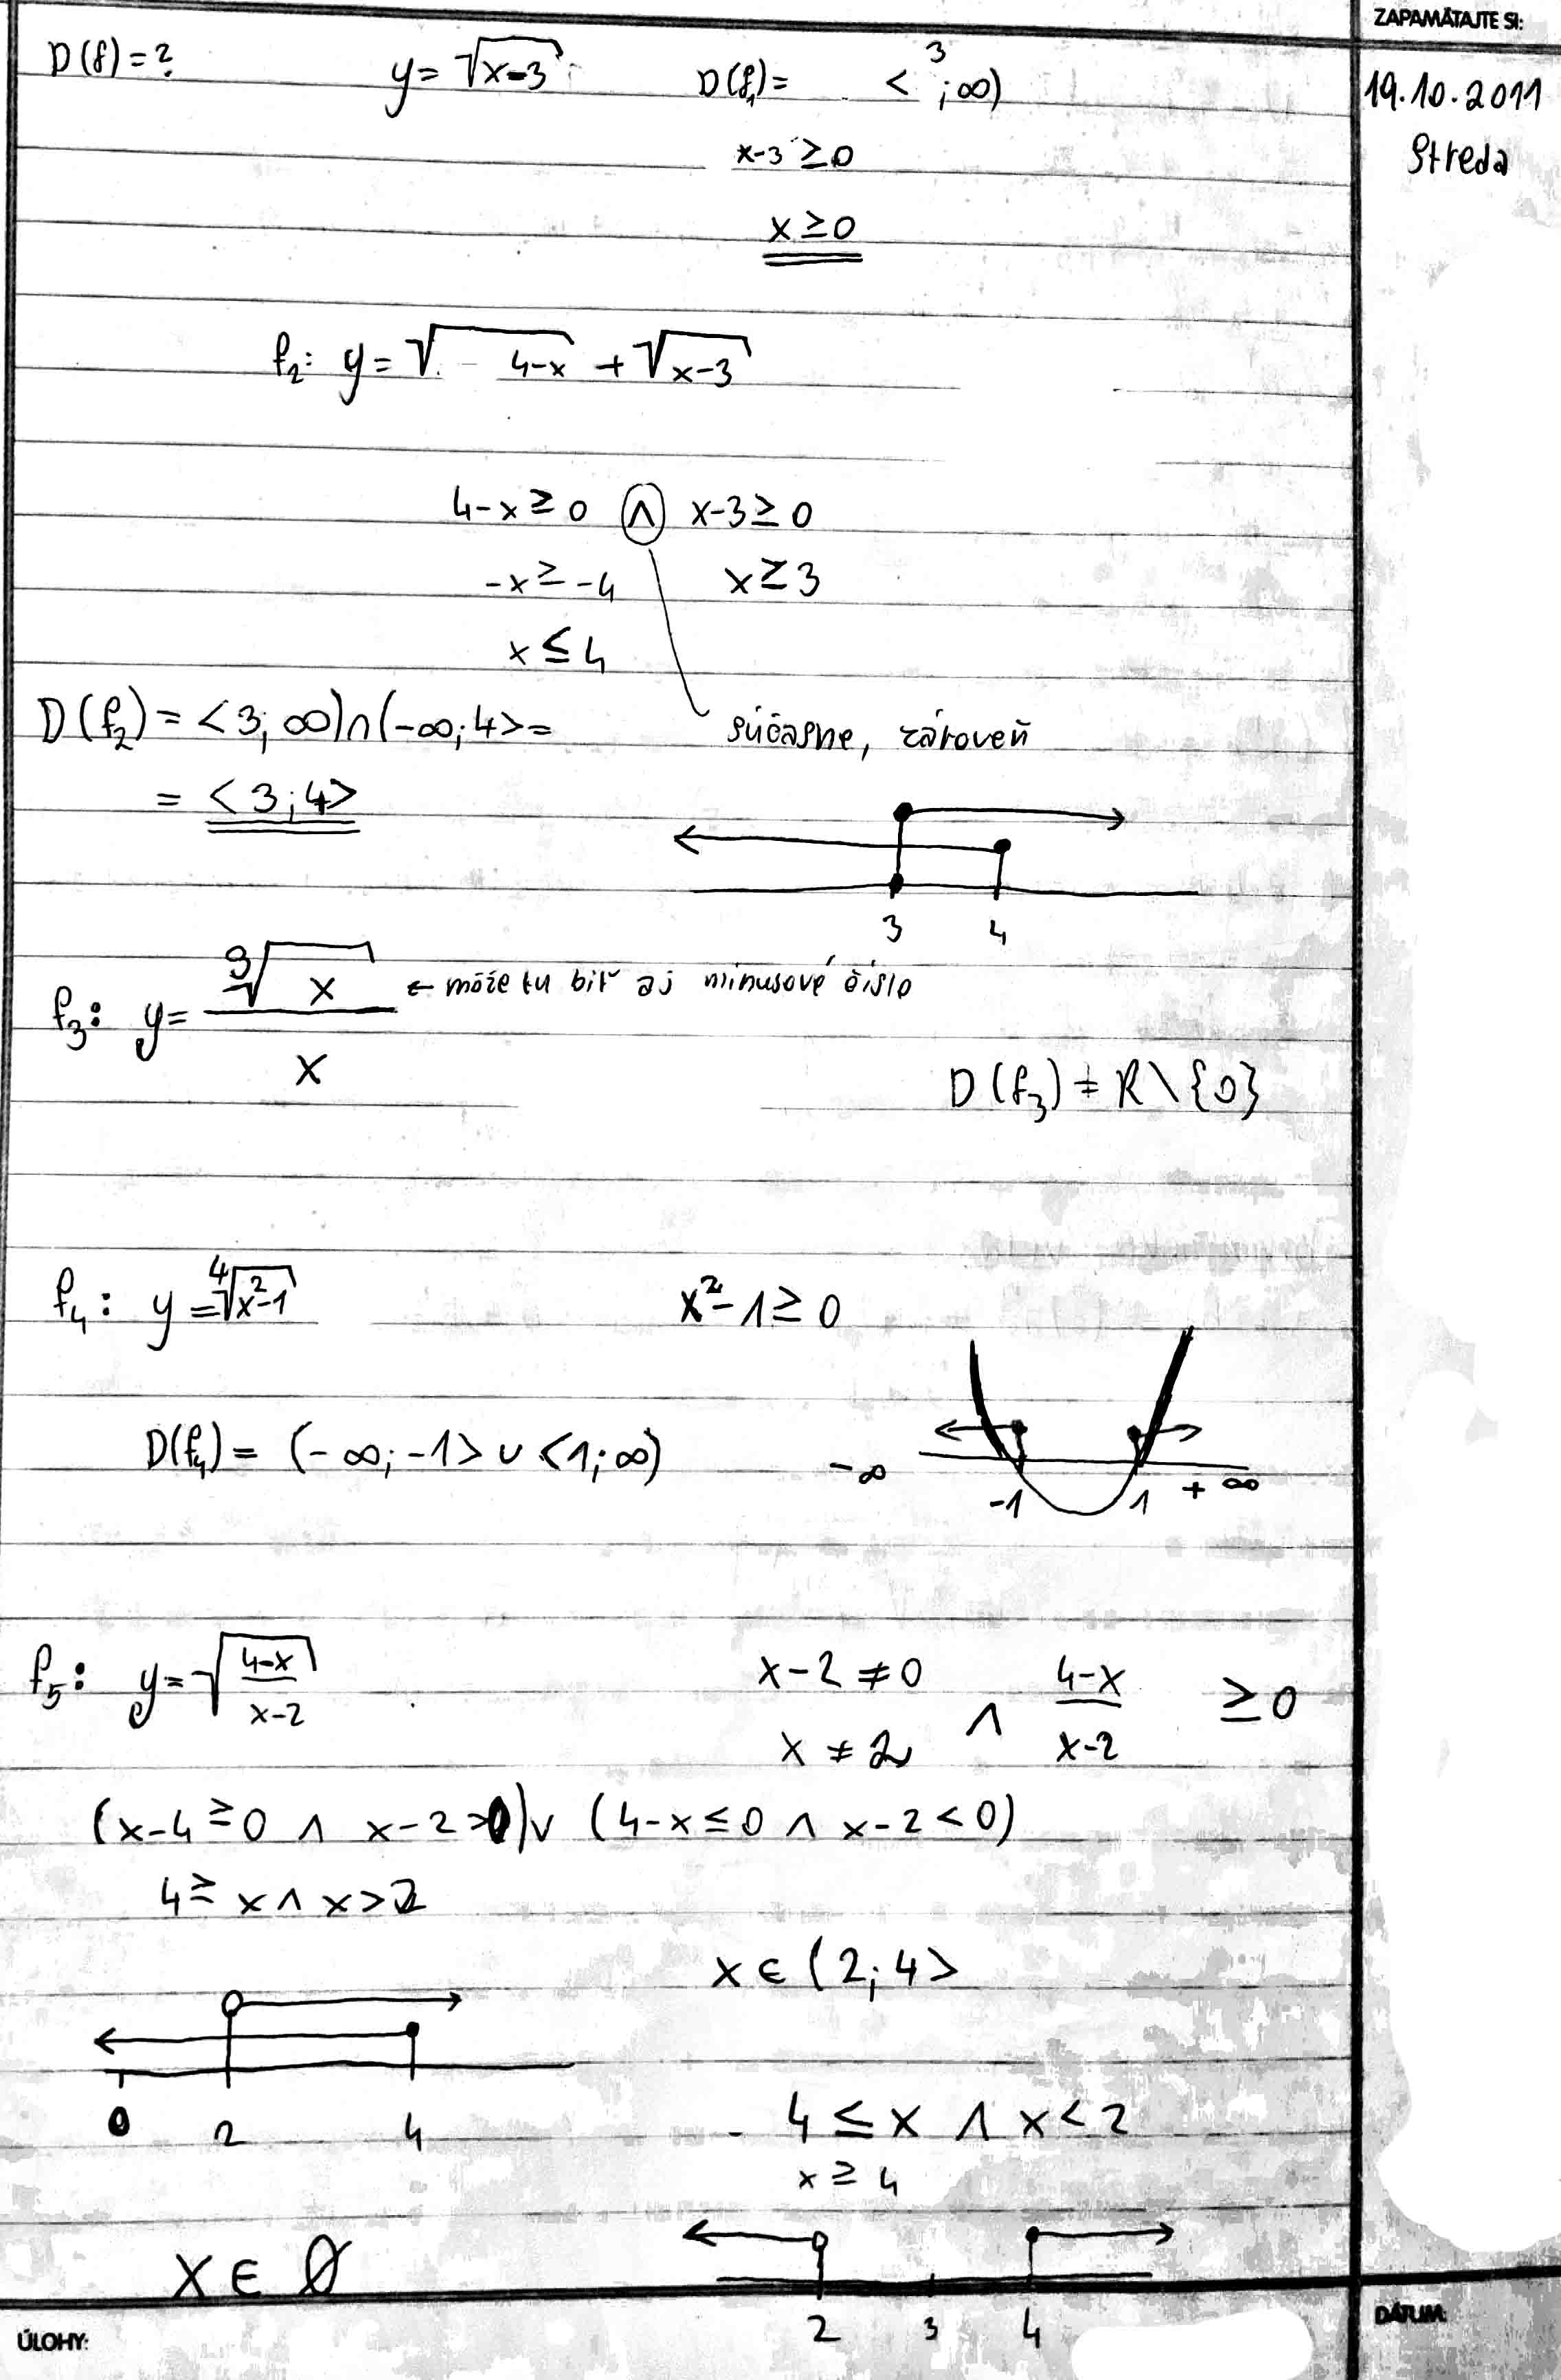 ZAPAMÄTAJTE SI:
D(f) = ? y = √x-3 D(f₁) = <3;∞)
19.10.2011
Streda
x-3 ≥ 0
x ≥ 0
f₂: y = √4-x + √x-3
4-x ≥ 0 ∧ x-3 ≥ 0
-x ≥ -4 x ≥ 3
x ≤ 4
D(f₂) = <3;∞)∩(-∞;4> =
súčasne, zároveň
= <3;4>
3 4
f₃: y = ∛x / x ← môže tu biť aj mínusové číslo
D(f₃) = R∖{0}
f₄: y = ∜x²-1 x²-1 ≥ 0
D(f₄) = (-∞;-1> ∪ <1;∞)
-∞ -1 1 +∞
f₅: y = √(4-x / x-2) x-2 ≠ 0 ∧ 4-x / x-2 ≥ 0
x ≠ 2
(x-4 ≥ 0 ∧ x-2 > 0) ∨ (4-x ≤ 0 ∧ x-2 < 0)
4 ≥ x ∧ x > 2
x ∈ (2;4>
0 2 4
4 ≤ x ∧ x < 2
x ≥ 4
x ∈ ∅
2 3 4
ÚLOHY:
DÁTUM: